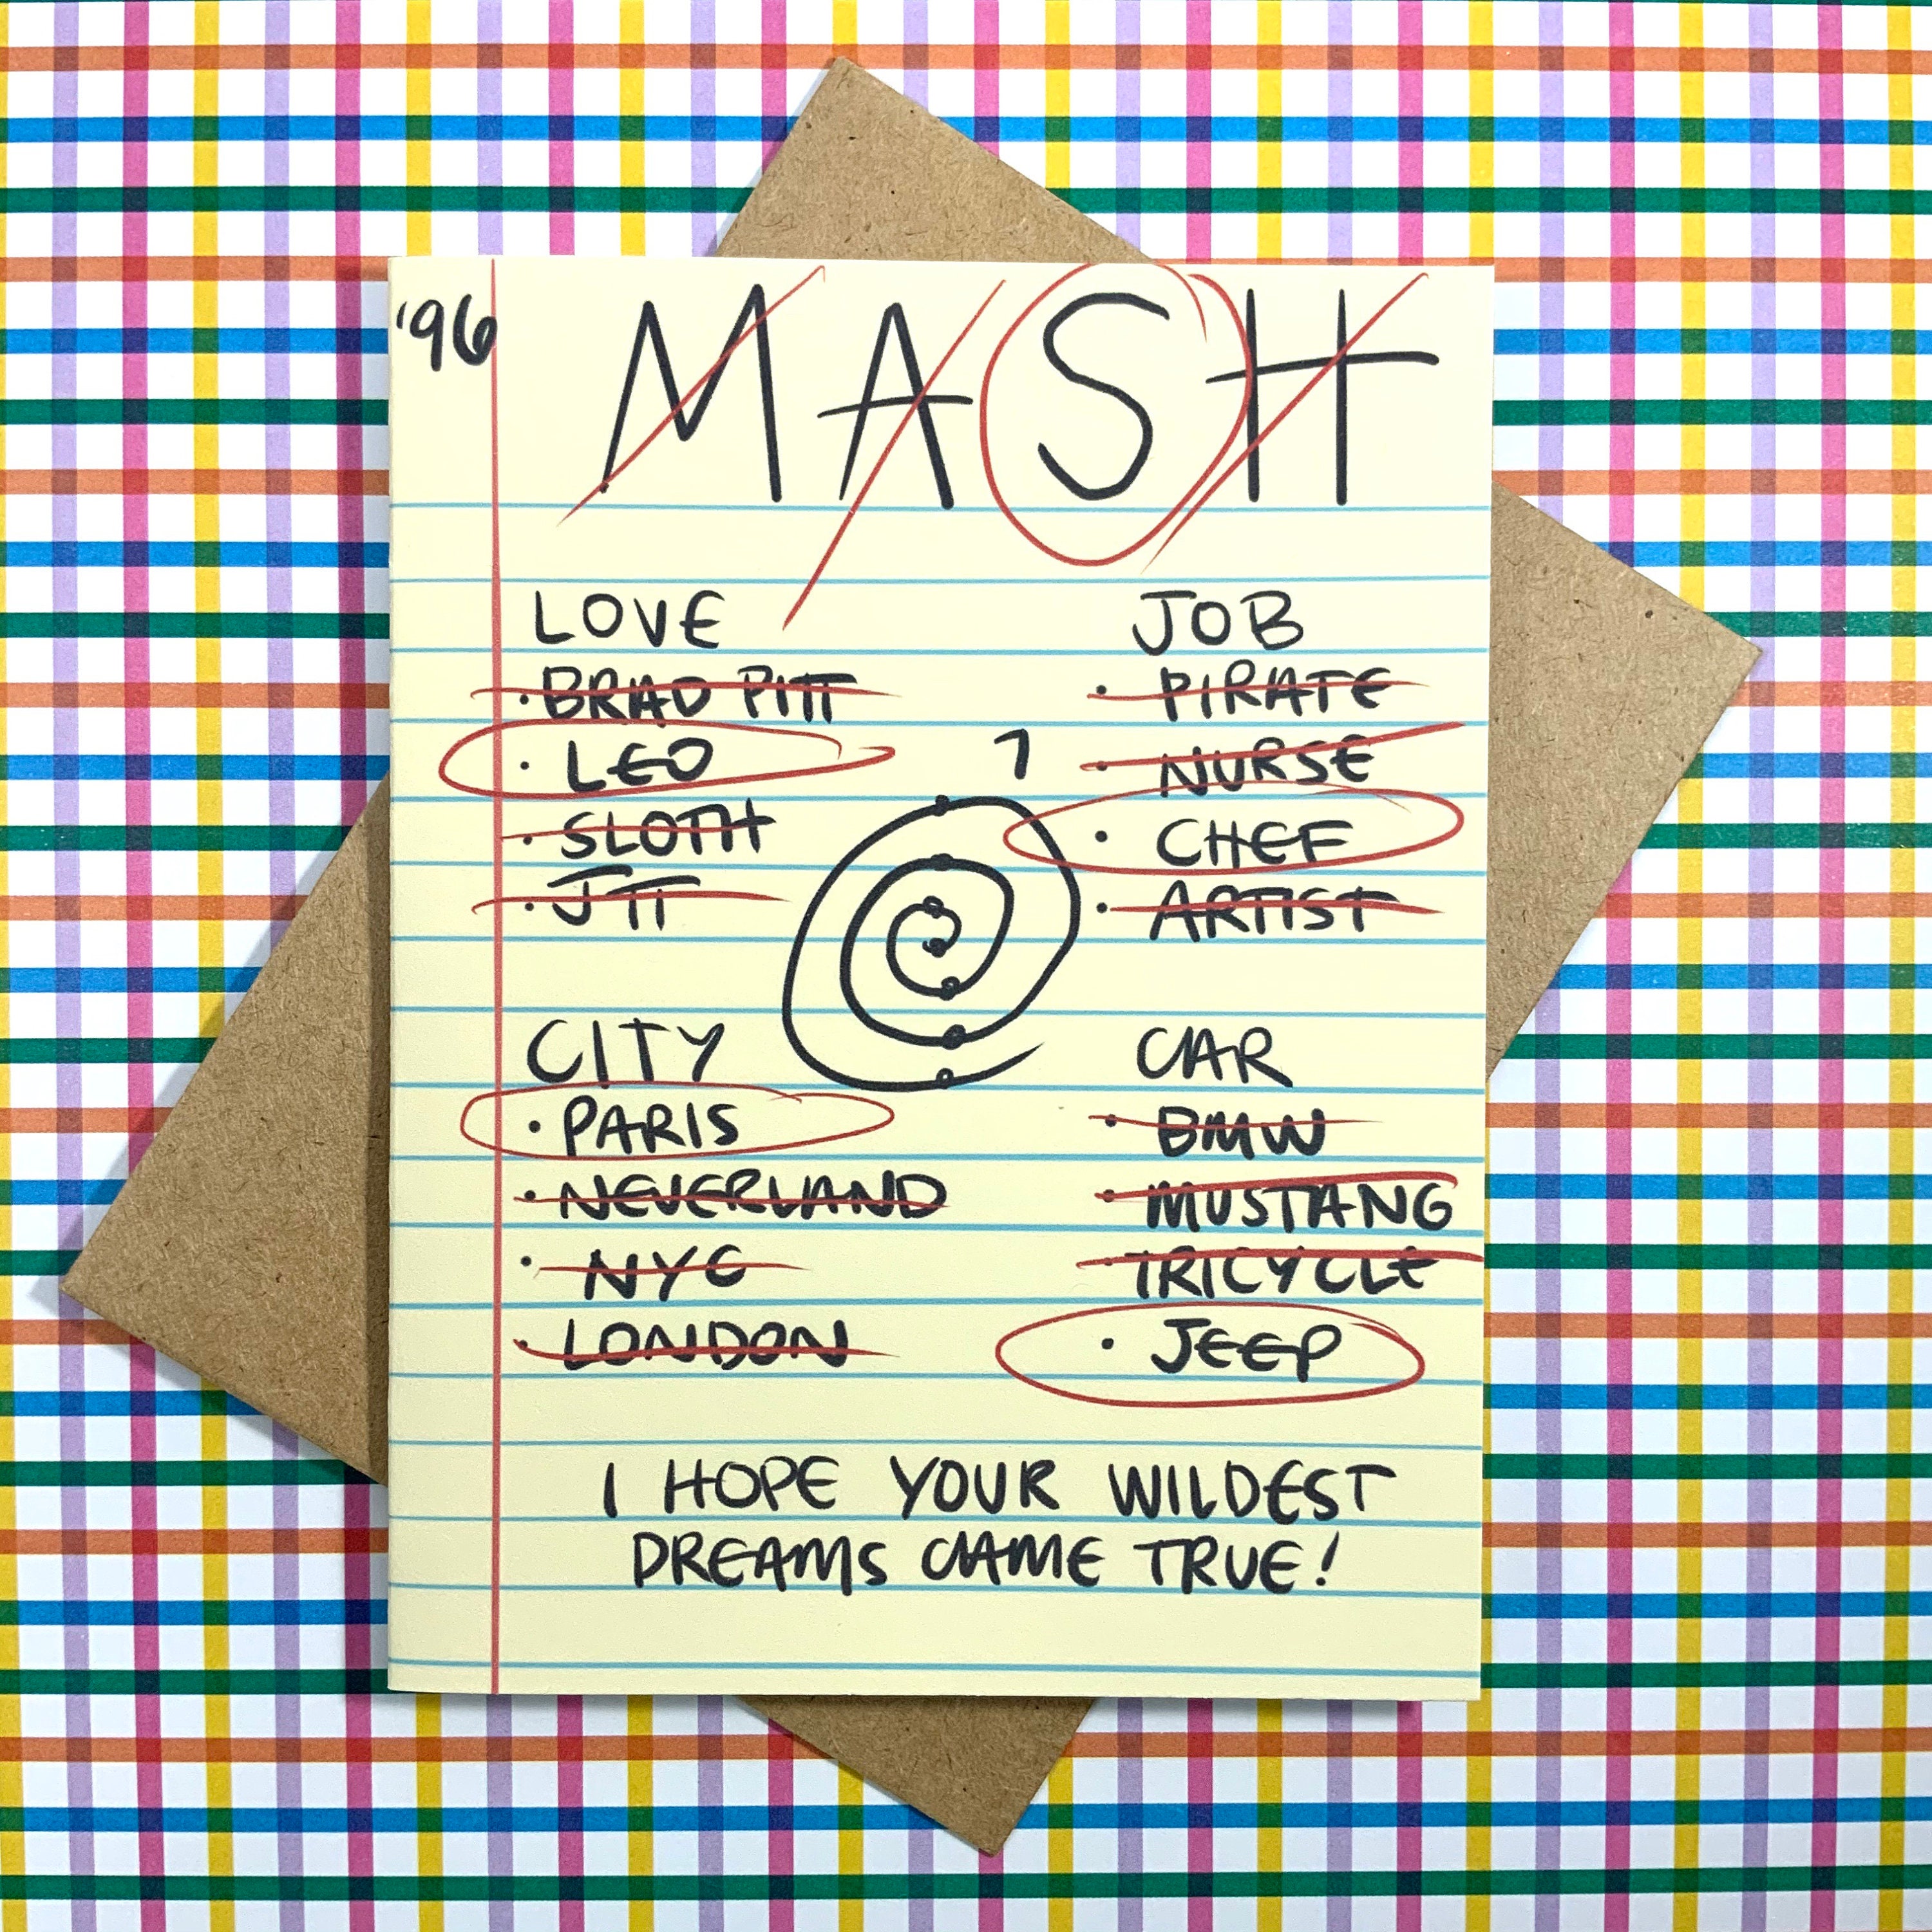 '96
MASH
LOVE
· BRAD PITT
· LEO
· SLOTH
· JTT
7
JOB
· PIRATE
· NURSE
· CHEF
· ARTIST
CITY
· PARIS
· NEVERLAND
· NYC
· LONDON
CAR
· BMW
· MUSTANG
· TRICYCLE
· JEEP
I HOPE YOUR WILDEST
DREAMS CAME TRUE!